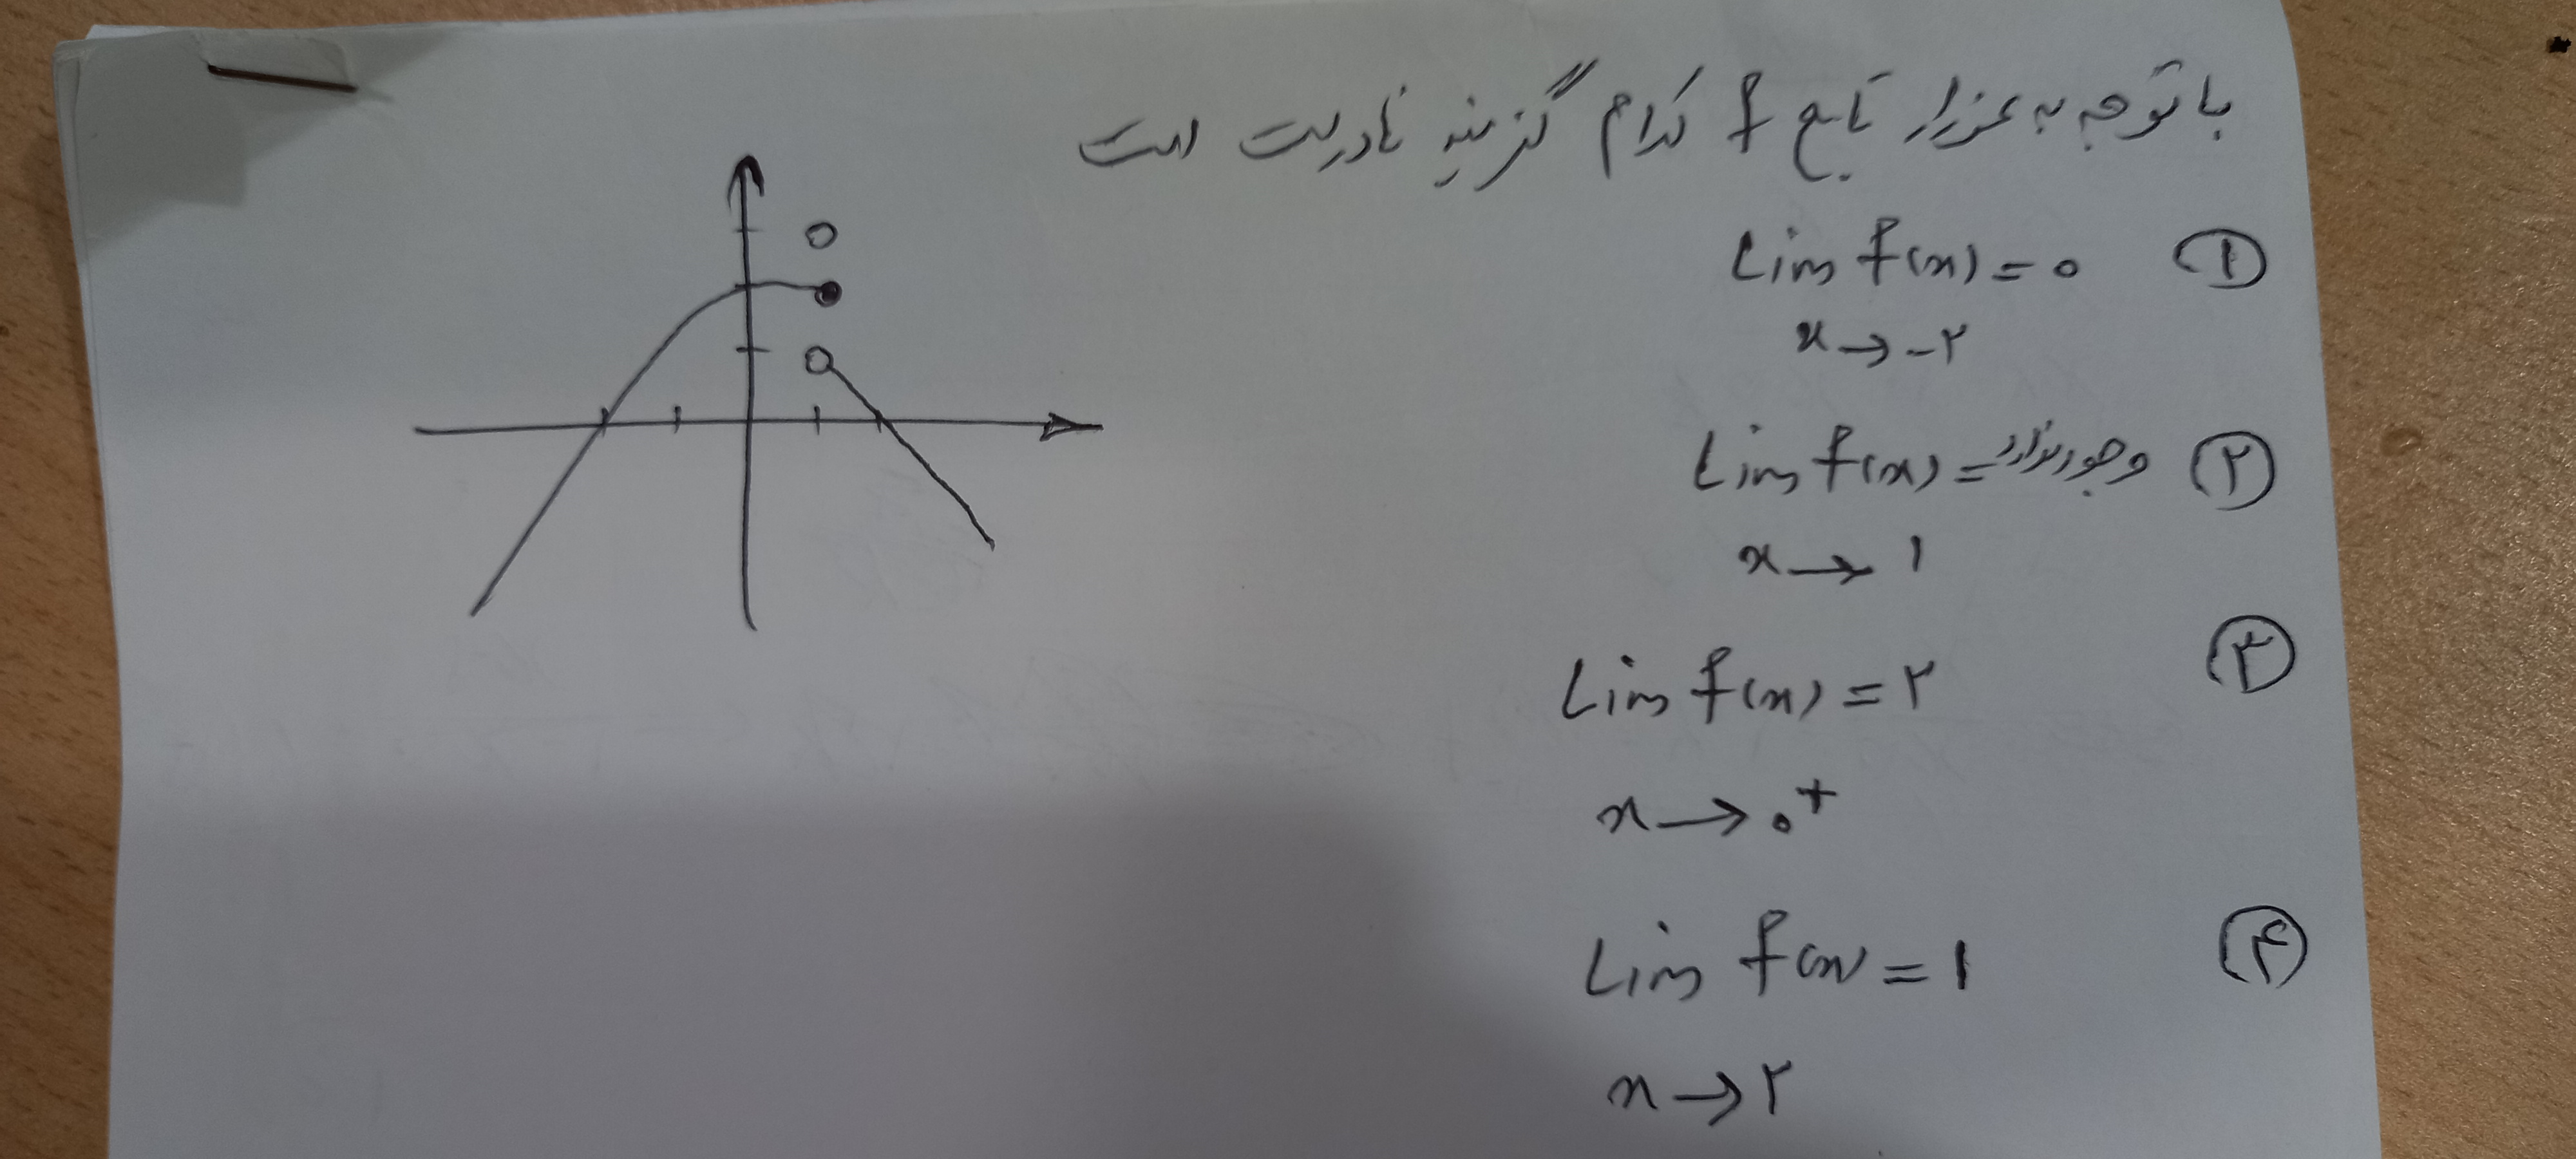 با توجه به نمودار تابع f کدام گزینه نادرست است
① Lim f(x) = ۰
x → -۲
② Lim f(x) = وجود ندارد
x → ۱
③ Lim f(x) = ۲
x → ۰⁺
④ Lim f(x) = ۱
x → ۲